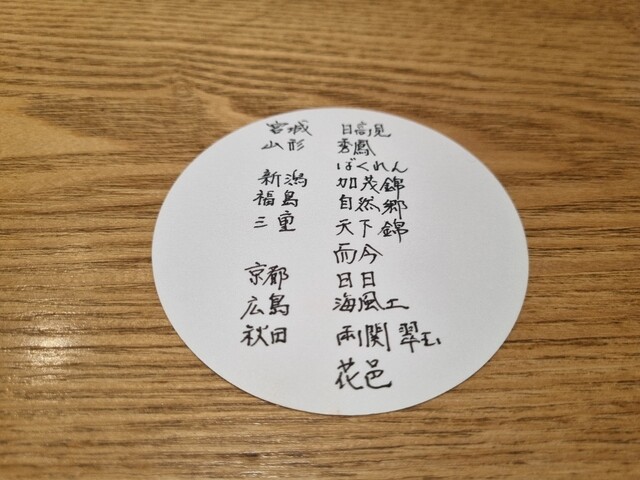 宮城 日高見
山形 秀鳳
ばくれん
新潟 加茂錦
福島 自然郷
三重 天下錦
而今
京都 日日
広島 海風土
秋田 両関 翠玉
花邑